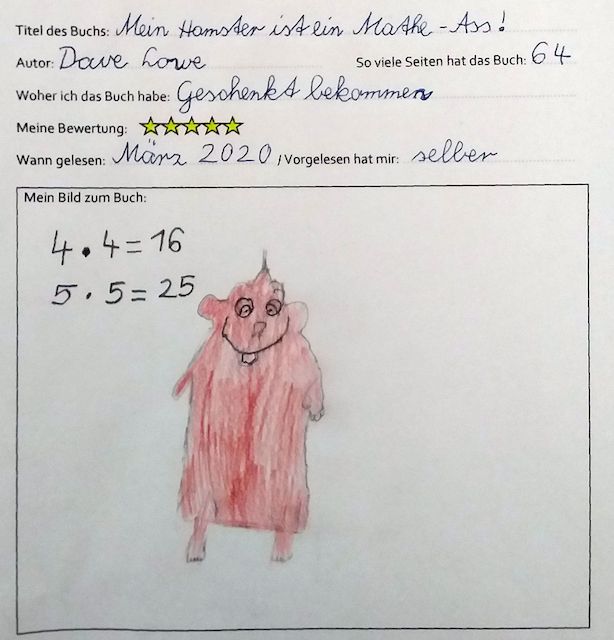 Titel des Buchs: Mein Hamster ist ein Mathe-Ass!
Autor: Dave Lowe So viele Seiten hat das Buch: 64
Woher ich das Buch habe: Geschenkt bekommen
Meine Bewertung:
Wann gelesen: März 2020 / Vorgelesen hat mir: selber
Mein Bild zum Buch:
4 · 4 = 16
5 · 5 = 25